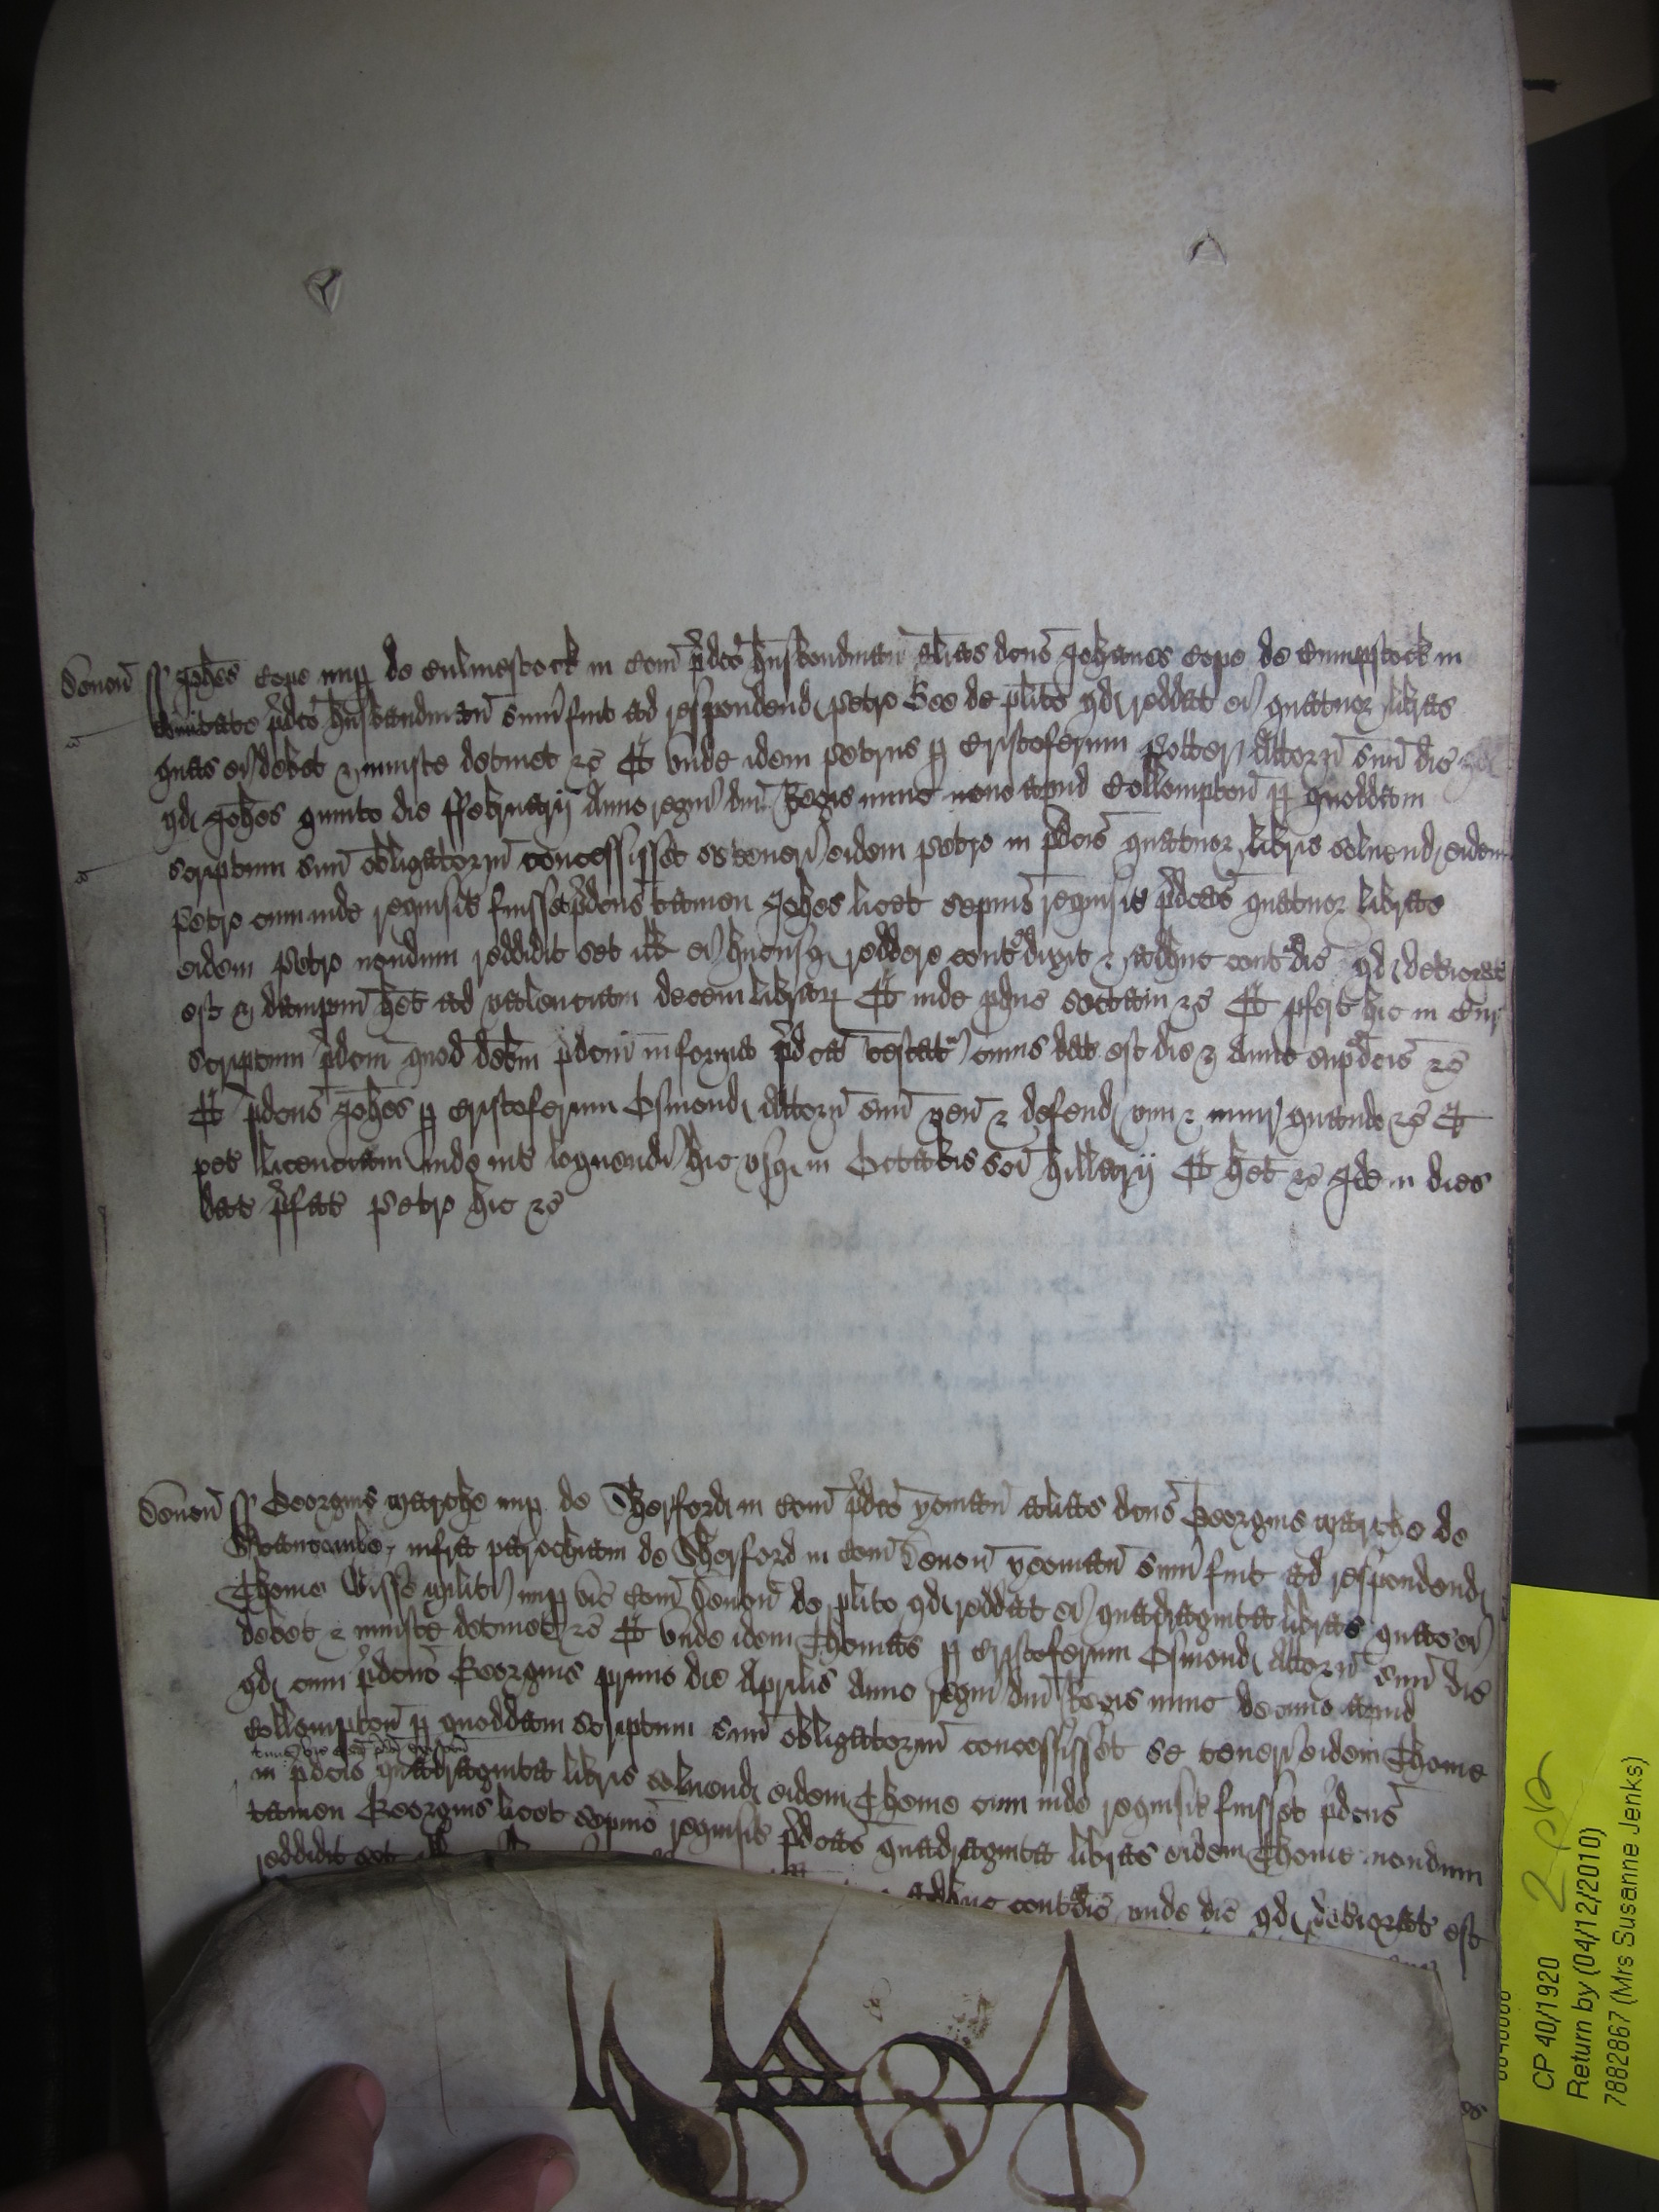 Devoñ ss Joħes Cope nup de Culmestock in Com p̃dco husbondman alias dcus Johannes Cope de Culmpstock in
Comitate p̃dco husbandman sum fuit ad respondend Petro See de plito qd reddat ei quatuor libras
quas ei debet & iniuste detinet &c Et unde idem Petrus p Cristoferum Potter Attorn suu dic
qd Joħes quinto die ffebruarij Anno regni dni Regis nunc nono apud Collompton p quoddam
scriptum suu obligatoriu concessisset se teneri eidem Petro in p̃dcis quatuor libris solvend eidem
Petro cum inde requisit fuisset p̃dcus tamen Joħes licet sepius requisit p̃dcas quatuor libras
eidem Petro nondum reddidit set ill ei hucusq reddere contradixit & adhuc contradic qd deteriorat
est & dampnu het ad valenciam decem librar Et inde pduc sectam &c Et pfert hic in Cur
scriptum p̃dcm quod debitm p̃dcm in forma p̃dca testat cuius dat est die & Anno supradcis &c
Et p̃dcus Joħes p Cristoferum Osmond Attorn suu ven & defend vim & iniur quando &c Et
pet licenciam inde int loquendi hic usq in Octabis sci Hillarij Et het &c Idem dies
dat p̃fat Petro hic &c
Devoñ ss Georgius Marche nup de Sherford in Com p̃dco yoman alias dcus Georgius Marche de
Stancombe infra parochiam de Sherford in Com Devon yeoman sum fuit ad respondend
Thome Wisse Militi nup vic Com Devon de plito qd reddat ei quadraginta libras quas ei
debet & iniuste detinet &c Et unde idem Thomas p Cristoferum Osmond Attorn suu dic
qd cum p̃dcus Georgius primo die Aprilis Anno regni dni Regis nunc decimo apud
Collompton p quoddam scriptum suu obligatoriu concessisset se teneri eidem Thome
in p̃dcis quadraginta libris solvend eidem Thome cum inde requisit fuisset p̃dcus
tamen Georgius licet sepius requisit p̃dcas quadraginta libras eidem Thome nondum
reddidit set ill
adhuc contradic unde dic qd deteriorat est
CP 40/1920
Return by (04/12/2010)
7882867 (Mrs Susanne Jenks)